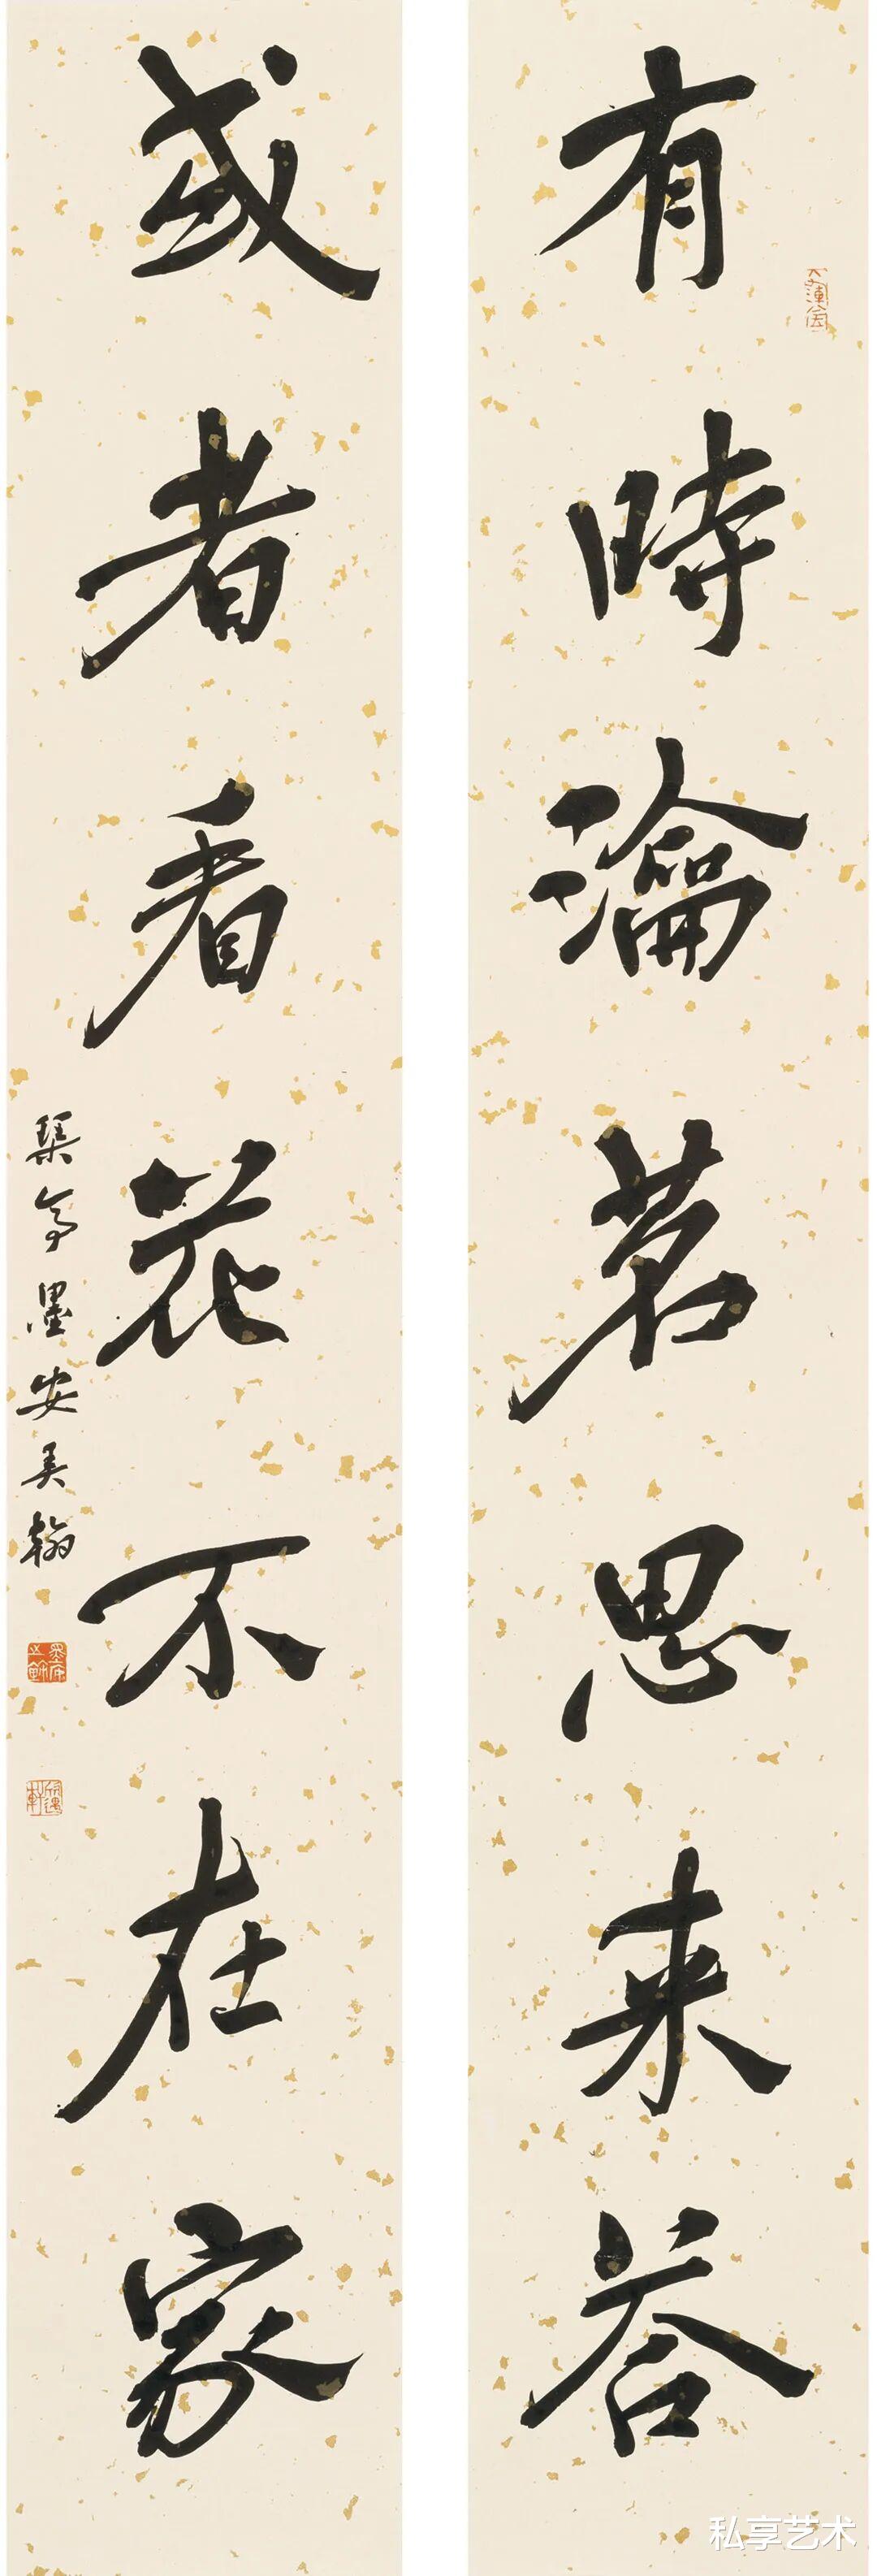 有時瀹茗思来答
或者看花不在家
琹亭墨安吴翰
私享艺术